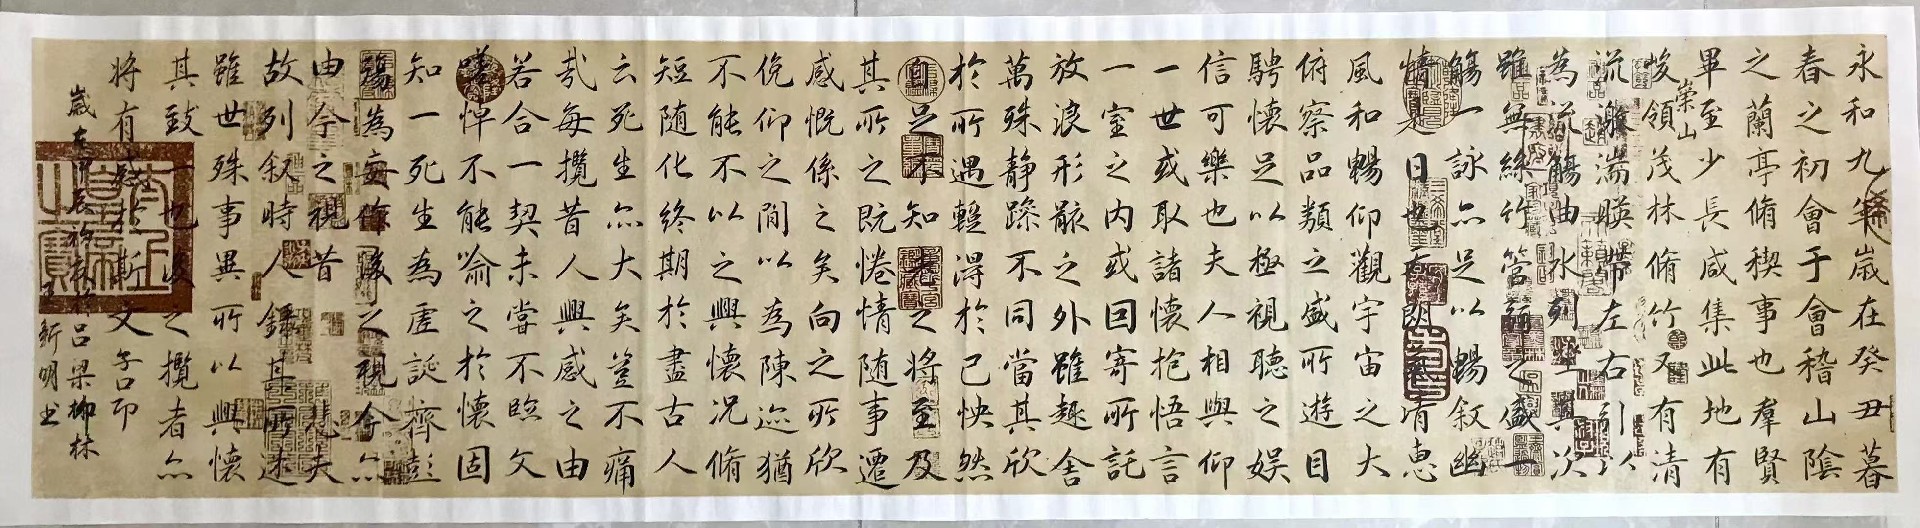 永和九年歲在癸丑暮
春之初會于會稽山陰
之蘭亭脩稧事也羣賢
畢至少長咸集此地有
崇山
峻領茂林脩竹又有清
流激湍暎帶左右引以
為流觴曲水列坐其次
雖無絲竹管弦之盛一
觴一詠亦足以暢叙幽
情是日也天朗氣清惠
風和暢仰觀宇宙之大
俯察品類之盛所遊目
騁懷足以極視聽之娛
信可樂也夫人相與仰
一世或取諸懷抱悟言
一室之内或因寄所託
放浪形骸之外雖趣舍
萬殊静躁不同當其欣
於所遇蹔得於己怏然
自足不知老之將至及
其所之既惓情随事遷
感慨係之矣向之所欣
俛仰之間以為陳迹猶
不能不以之興懷況脩
短随化終期於盡古人
云死生亦大矣豈不痛
哉每攬昔人興感之由
若合一契未嘗不臨文
嗟悼不能喻之於懷固
知一死生為虛誕齊彭
殤為妄作後之視今亦
由今之視昔 悲夫
故列叙時人錄其所述
雖世殊事異所以興懷
其致一也後之攬者亦
將有感於斯文
歲在甲辰秋於呂梁柳林
新明書